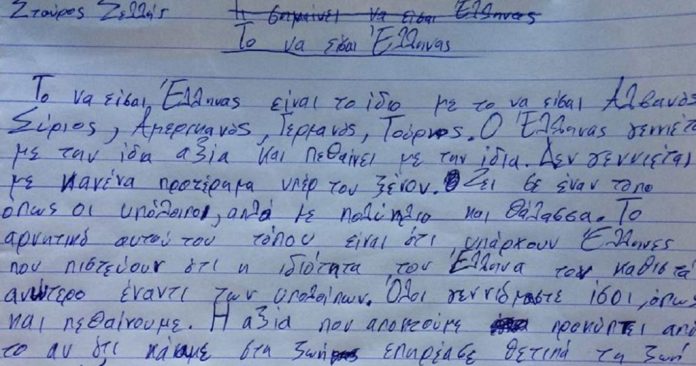 Σταύρος Ζελλής Τι σημαίνει να είσαι Έλληνας
Το να είσαι Έλληνας
Το να είσαι Έλληνας είναι το ίδιο με το να είσαι Αλβανός
Σύριος, Αμερικανός, Γερμανός, Τούρκος. Ο Έλληνας γεννιέτα
με την ίδια αξία και πεθαίνει με την ίδια. Δεν γεννιέται
με κανένα προτέρημα υπέρ του ξένου. Ζει σε έναν τόπο
όπως οι υπόλοιποι, απλά με πολύ ήλιο και θάλασσα. Το
αρνητικό αυτού του τόπου είναι ότι υπάρχουν Έλληνες
που πιστεύουν ότι η ιδιότητα του Έλληνα τον καθιστά
ανώτερο έναντι των υπολοίπων. Όλοι γεννιόμαστε ίσοι, όπω
και πεθαίνουμε. Η αξία που αποκτούμε προκύπτει από
το αν ότι κάναμε στη ζωή επηρέασε θετικά τη ζωή